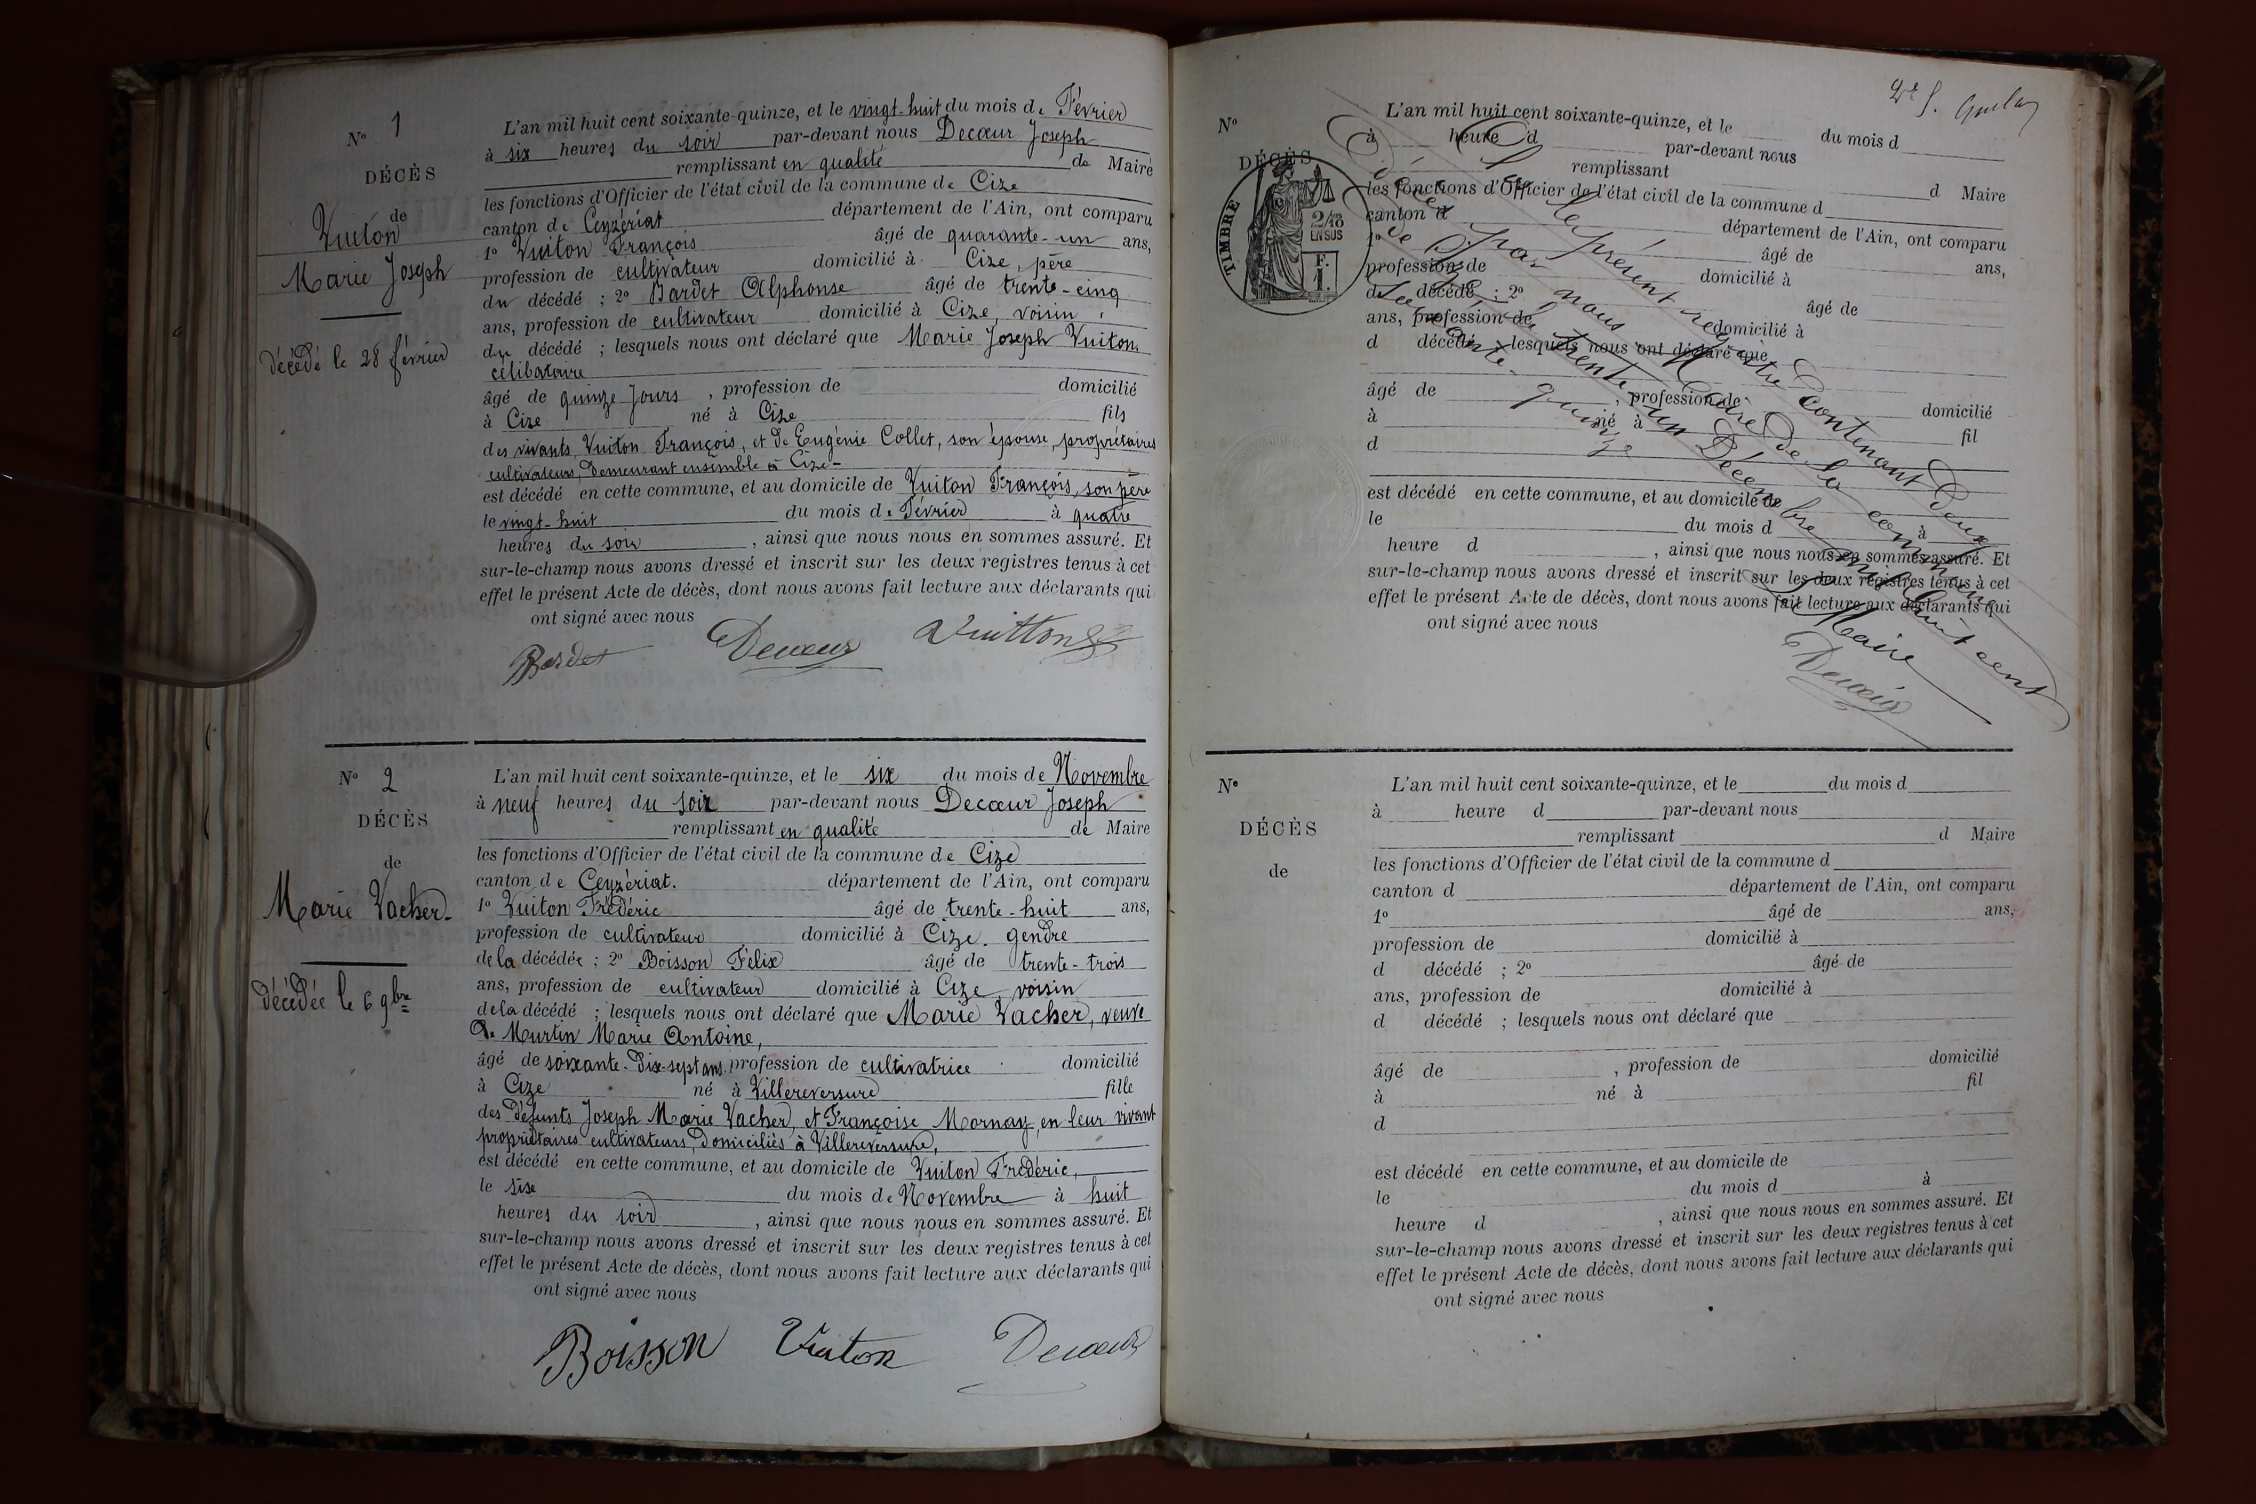 N° 1
DÉCÈS
de
Vuiton
Marie Joseph
décédé le 28 février
L'an mil huit cent soixante-quinze, et le vingt-huit du mois de Février
à six heures du soir par-devant nous Decœur Joseph
remplissant en qualité de Maire
les fonctions d'Officier de l'état civil de la commune de Cize
canton de Ceyzériat département de l'Ain, ont comparu
1° Vuiton François âgé de quarante-un ans,
profession de cultivateur domicilié à Cize, père
du décédé ; 2° Bardet Alphonse âgé de trente-cinq
ans, profession de cultivateur domicilié à Cize, voisin
du décédé ; lesquels nous ont déclaré que Marie Joseph Vuiton,
célibataire
âgé de quinze jours , profession de domicilié
à Cize né à Cize fils
des vivants Vuiton François, et de Eugénie Collet, son épouse, propriétaires
cultivateurs, demeurant ensemble à Cize-
est décédé en cette commune, et au domicile de Vuiton François, son père
le vingt-huit du mois de Février à quatre
heures du soir , ainsi que nous nous en sommes assuré. Et
sur-le-champ nous avons dressé et inscrit sur les deux registres tenus à cet
effet le présent Acte de décès, dont nous avons fait lecture aux déclarants qui
ont signé avec nous
Bardet Decœur Vuitton
N° 2
DÉCÈS
de
Marie Vacher
décédée le 6 9bre
L'an mil huit cent soixante-quinze, et le six du mois de Novembre
à neuf heures du soir par-devant nous Decœur Joseph
remplissant en qualité de Maire
les fonctions d'Officier de l'état civil de la commune de Cize
canton de Ceyzériat. département de l'Ain, ont comparu
1° Vuiton Frédéric âgé de trente-huit ans,
profession de cultivateur domicilié à Cize. gendre
de la décédée ; 2° Boisson Félix âgé de trente-trois
ans, profession de cultivateur domicilié à Cize, voisin
de la décédé ; lesquels nous ont déclaré que Marie Vacher, veuve
de Murtin Marie Antoine,
âgé de soixante-dix-sept ans, profession de cultivatrice domicilié
à Cize né à Villereversure fille
des défunts Joseph Marie Vacher, et Françoise Mornay, en leur vivant
propriétaires cultivateurs, domiciliés à Villereversure,
est décédé en cette commune, et au domicile de Vuiton Frédéric,
le six du mois de Novembre à huit
heures du soir , ainsi que nous nous en sommes assuré. Et
sur-le-champ nous avons dressé et inscrit sur les deux registres tenus à cet
effet le présent Acte de décès, dont nous avons fait lecture aux déclarants qui
ont signé avec nous
Boisson Vuiton Decœur
N°
DÉCÈS
TIMBRE
2/10
EN SUS
F.
1.
L'an mil huit cent soixante-quinze, et le du mois d
à heure d par-devant nous
remplissant d Maire
les fonctions d'Officier de l'état civil de la commune d
canton d département de l'Ain, ont comparu
1° âgé de ans,
profession de domicilié à
d décédé ; 2° âgé de
ans, profession de domicilié à
d décédé ; lesquels nous ont déclaré que
âgé de , profession de domicilié
à né à fil
d
est décédé en cette commune, et au domicile de
le du mois d à
heure d , ainsi que nous nous en sommes assuré. Et
sur-le-champ nous avons dressé et inscrit sur les deux registres tenus à cet
effet le présent Acte de décès, dont nous avons fait lecture aux déclarants qui
ont signé avec nous
le présent registre contenant deux
par nous Maire de la commune
de Cize, le trente un Décembre mil huit cent
soixante-quinze
Le Maire
Decœur
N°
DÉCÈS
de
L'an mil huit cent soixante-quinze, et le du mois d
à heure d par-devant nous
remplissant d Maire
les fonctions d'Officier de l'état civil de la commune d
canton d département de l'Ain, ont comparu
1° âgé de ans,
profession de domicilié à
d décédé ; 2° âgé de
ans, profession de domicilié à
d décédé ; lesquels nous ont déclaré que
âgé de , profession de domicilié
à né à fil
d
est décédé en cette commune, et au domicile de
le du mois d à
heure d , ainsi que nous nous en sommes assuré. Et
sur-le-champ nous avons dressé et inscrit sur les deux registres tenus à cet
effet le présent Acte de décès, dont nous avons fait lecture aux déclarants qui
ont signé avec nous